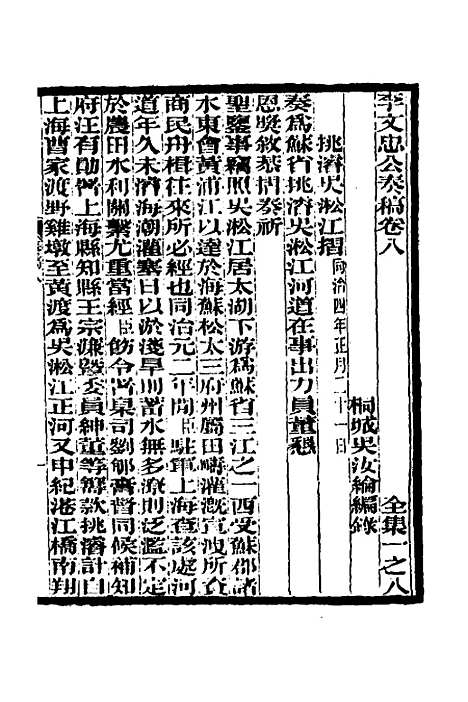 李文忠公奏稿卷八　全集一之八
桐城吳汝綸編錄
挑濬吳淞江摺同治四年正月二十一日
奏爲蘇省挑濬吳淞江河道在事出力員董懇
恩獎敘恭摺奏祈
聖鑒事竊照吳淞江居太湖下游爲蘇省三江之一西受蘇郡諸
水東會黃浦江以達於海蘇松太三府州屬田疇灌溉宣洩所資
商民舟楫往來所必經也同治元二年間臣駐軍上海查該處河
道年久未濬海潮灌塞日以淤淺旱則蓄水無多潦則泛濫不定
於農田水利關繫尤重當經臣飭令前臬司劉郇膏督同候補知
府汪有勛署上海縣知縣王宗濂暨委員紳董等籌款挑濬計自
上海曹家渡野雞墩至黃渡爲吳淞江正河又申紀港江橋南翔